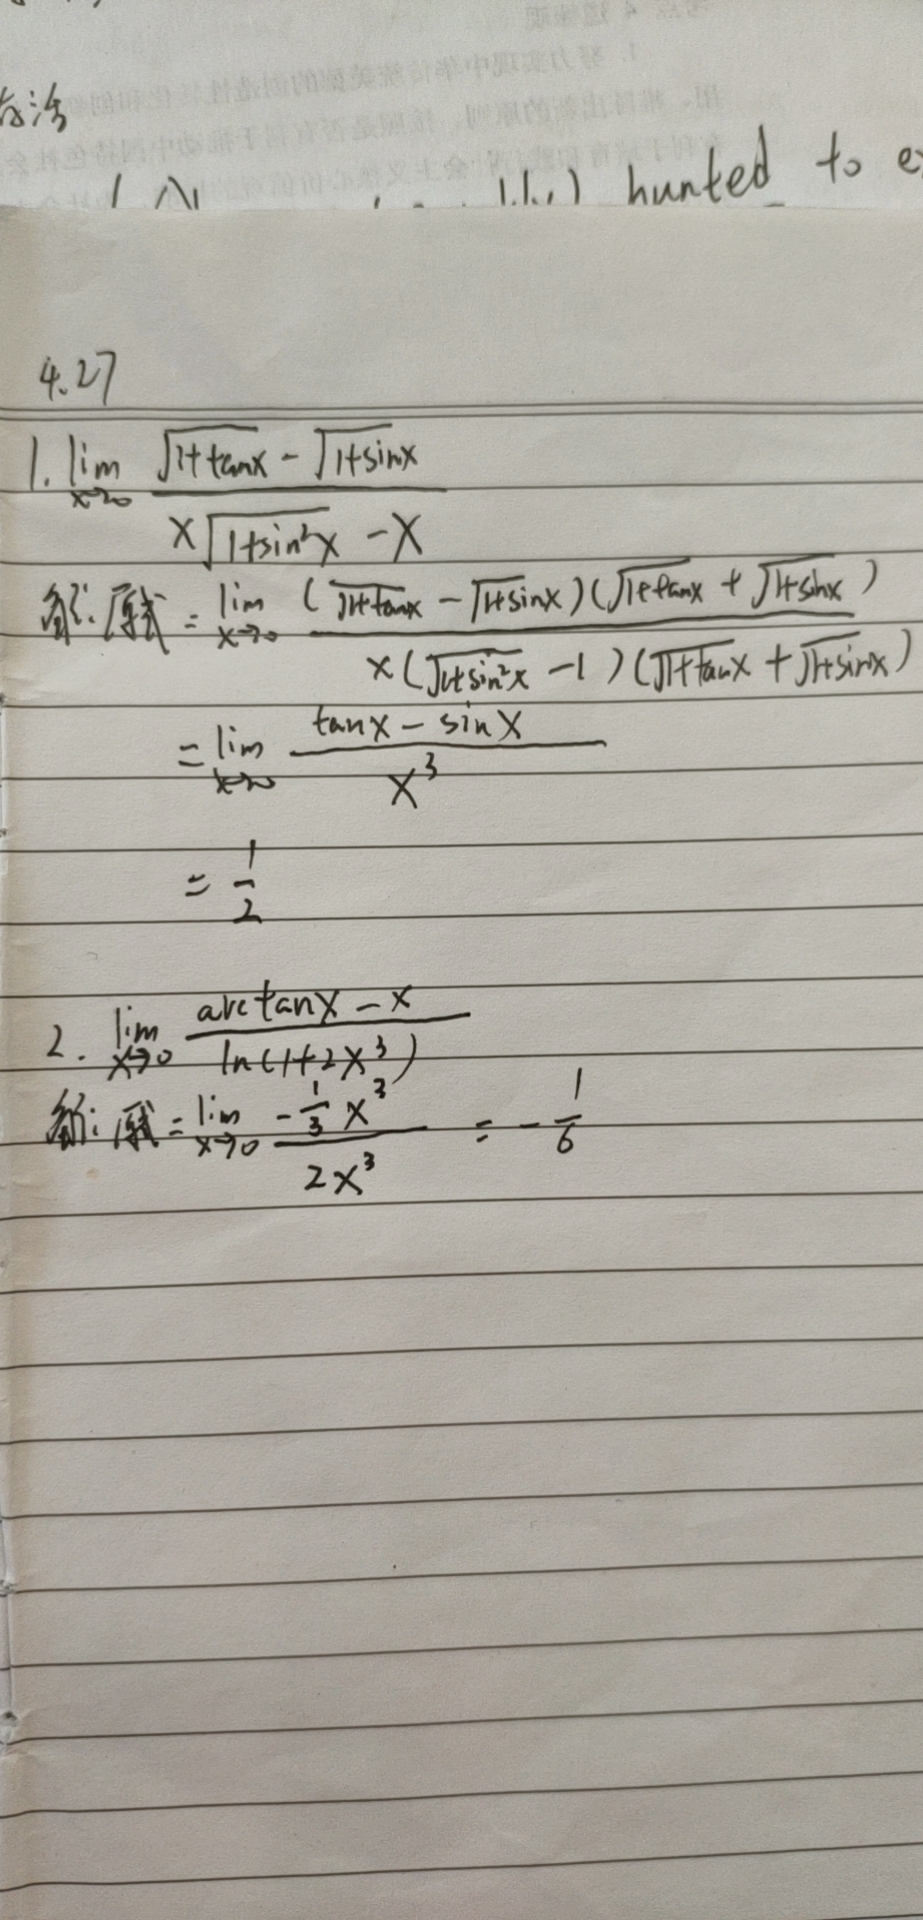 hunted to
4.27
1. lim x→0 (√1+tanx - √1+sinx) / (x√1+sin²x - x)
解: 原式 = lim x→0 (√1+tanx - √1+sinx)(√1+tanx + √1+sinx) / x(√1+sin²x - 1)(√1+tanx + √1+sinx)
= lim x→0 (tanx - sinx) / x³
= 1/2
2. lim x→0 (arctanx - x) / ln(1+2x³)
解: 原式 = lim x→0 (-1/3 x³) / 2x³ = -1/6